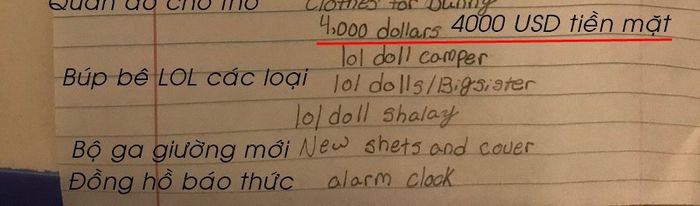 Quần áo cho thỏ Clothes for bunny
4,000 dollars 4000 USD tiền mặt
lol doll camper
Búp bê LOL các loại lol dolls/Bigsister
lol doll shalay
Bộ ga giường mới New shets and cover
Đồng hồ báo thức alarm clock